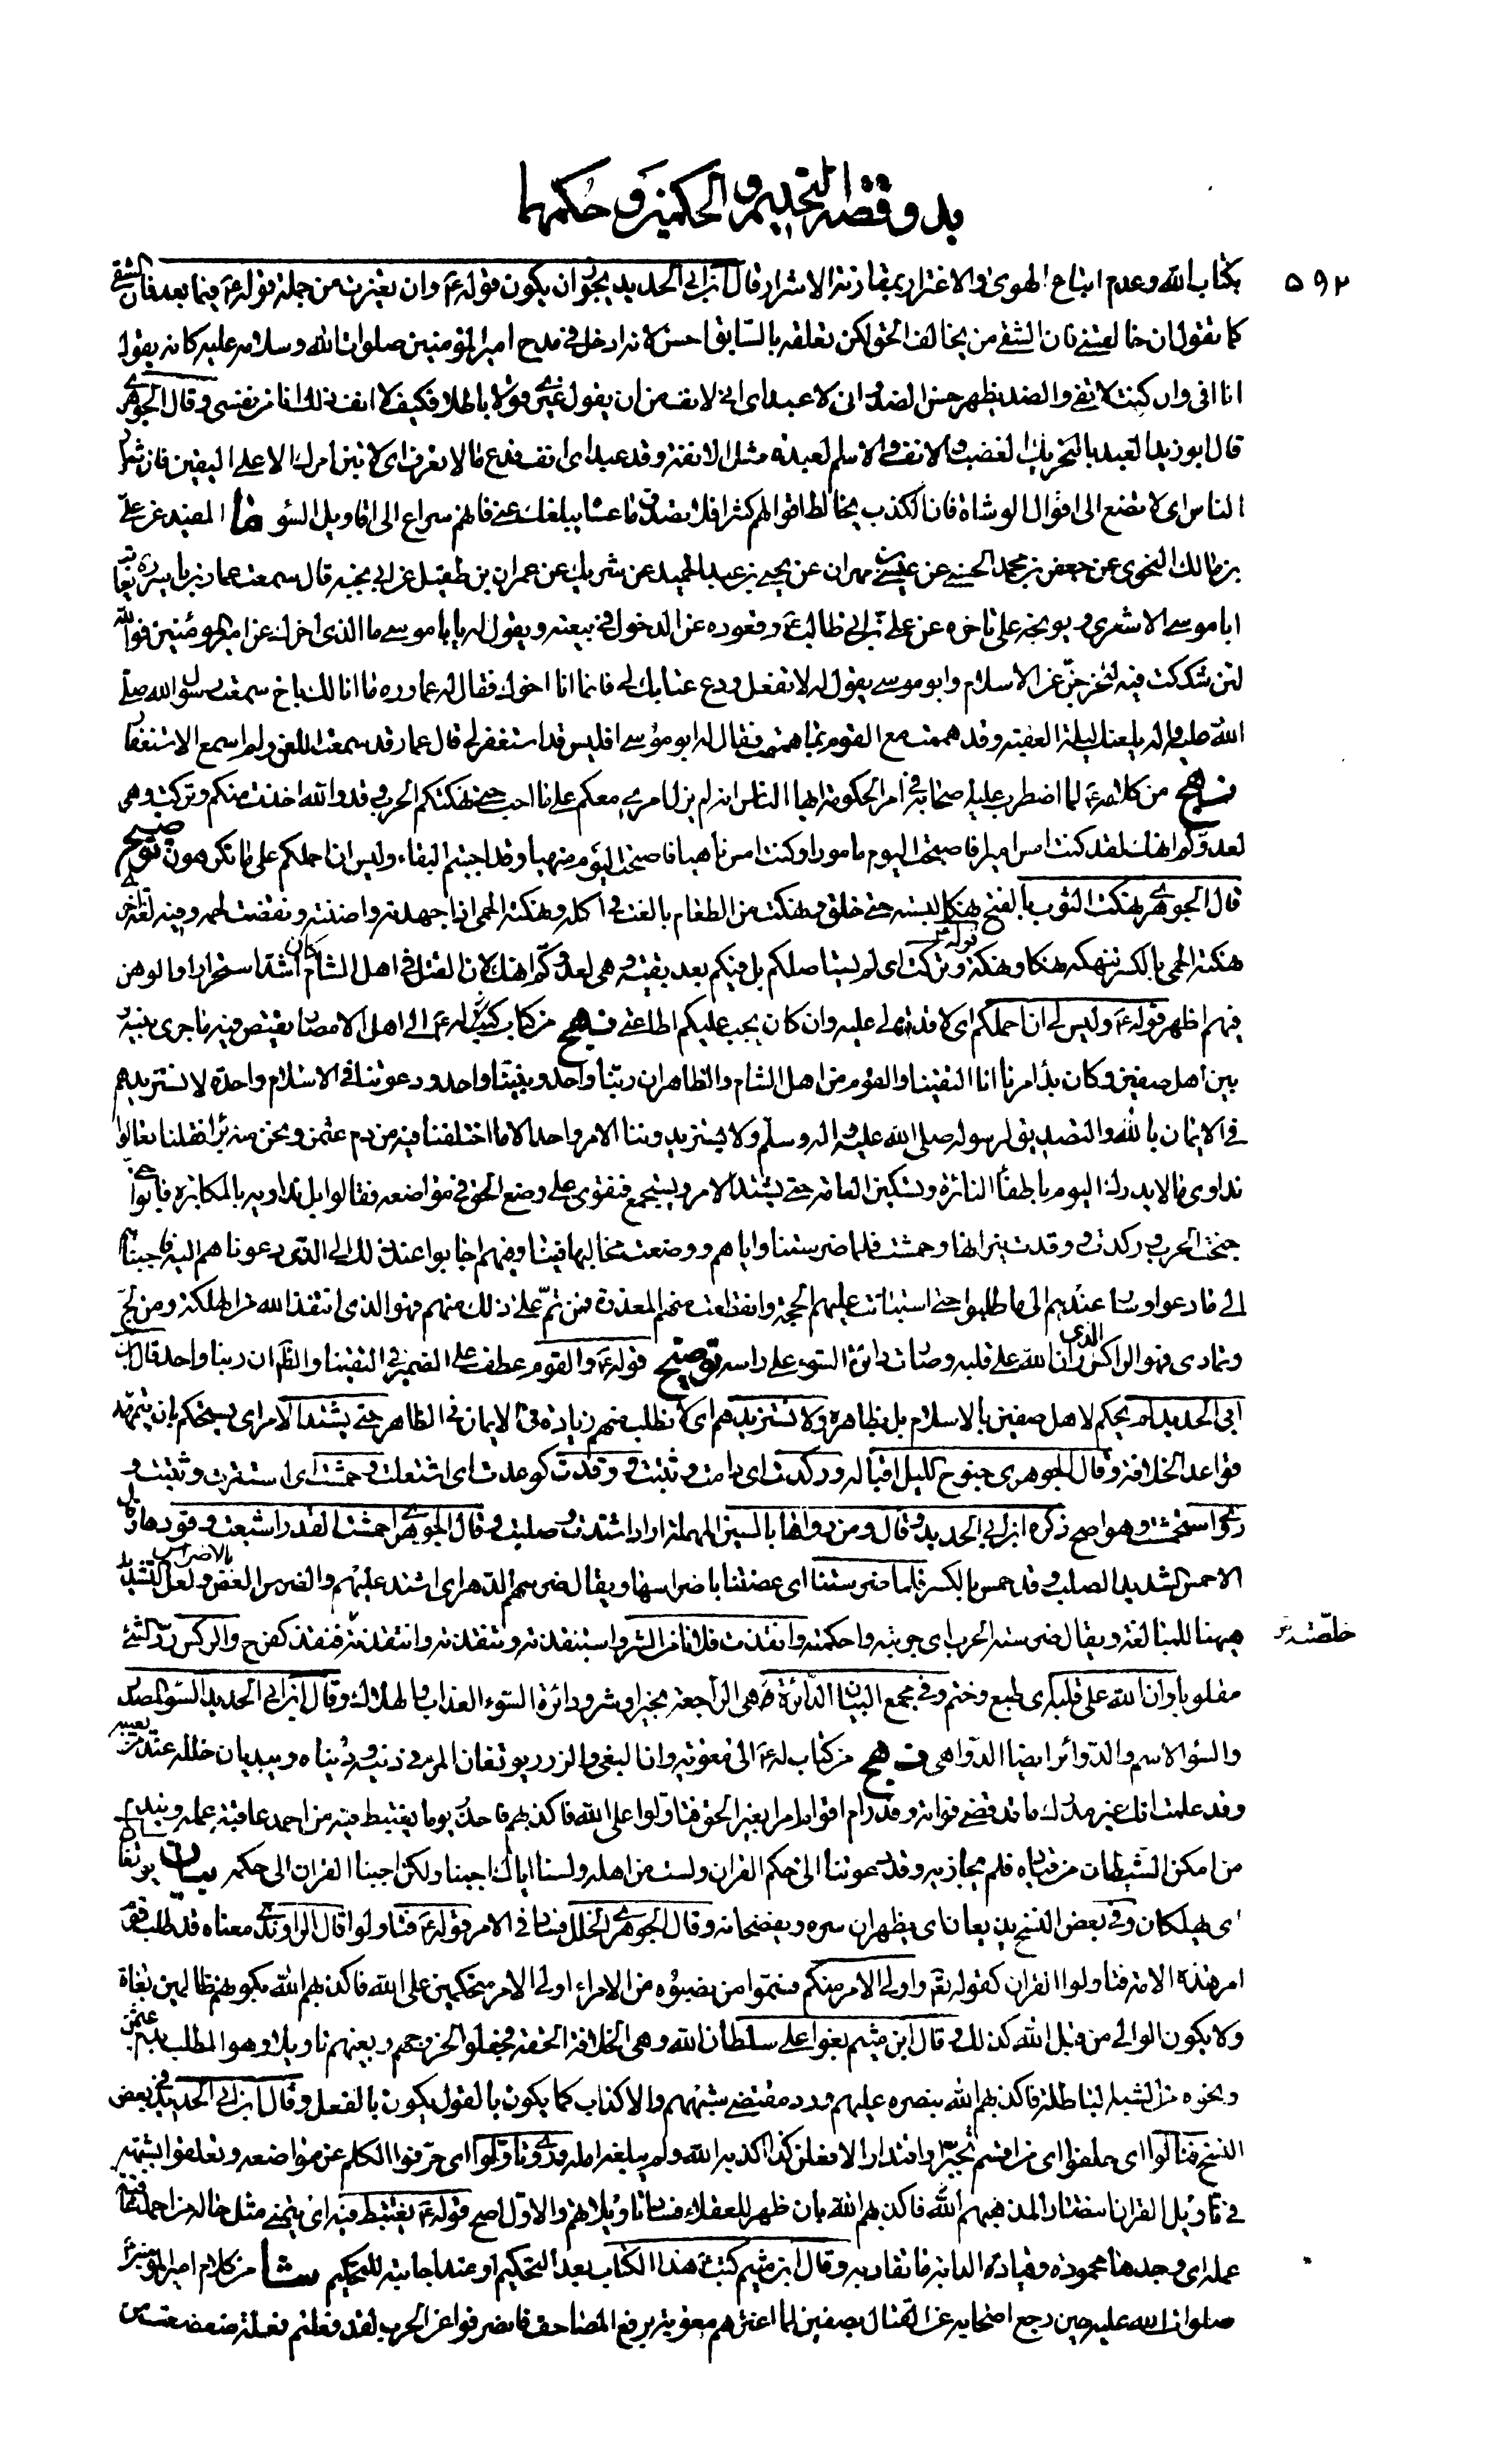 بدو قصة التحكيم والحكمين وحكمهما
۵۹۲
بكتاب الله وعدم اتباع الهوى والاغترار بمقارنة الاشرار قال ابن ابي الحديد يجوز ان يكون قوله ع وان تغيرت من جملة قوله ع فيما بعد فان الشقي
كما تقول ان خالفتني فان الشقي من يخالف الحق لكن تعلقه بالسابق احسن لانه ادخل في مدح امير المؤمنين صلوات الله وسلامه عليه كانه يقول
انا افي وان كنت لا تفي والضد يظهر حسن الضد اني لاعبد اي اني لانف من ان يقول غيري قولا باطلا فكيف لا انف ذلك انا من نفسي وقال الجوهري
قال ابو زيد العبد بالتحريك الغضب والانف والاسم العبدة مثل الانفة وقد عبد اي انف فدع ما لا تعرف اي لا تبن امرك الا على اليقين فان شرار
الناس اي لا تصغ الى اقوال الوشاة فان الكذب يخالط اقوالهم كثيرا فلا تصدق ما عسا يبلغك عني فانهم سراع الى اقاويل السوء ما المفيد عن علي
بن مالك النحوي عن جعفر بن محمد الحسني عن عيسى بن مهران عن يحيى بن عبد الحميد عن شريك عن عمران بن طفيل عن ابي نجبة قال سمعت عمار بن ياسر ره يعاتب
ابا موسى الاشعري ويوبخه على تاخره عن علي بن ابي طالب ع وقعوده عن الدخول في بيعته ويقول له يا ابا موسى ما الذي اخرك عن امير المؤمنين فوالله
لئن شككت فيه لتخرجن عن الاسلام وابو موسى يقول له لا تفعل ودع عتابك لي فانما انا اخوك فقال له عمار ره ما انا لك باخ سمعت رسول الله صلى
الله عليه واله يلعنك ليلة العقبة وقد هممت مع القوم بما هممت فقال له ابو موسى افليس قد استغفر لي قال عمار قد سمعت اللعن ولم اسمع الاستغفار
نهج من كلامه ع لما اضطرب عليه اصحابه في امر الحكومة ايها الناس انه لم يزل امري معكم على ما احب حتى نهكتكم الحرب وقد والله اخذت منكم وتركت وهي
لعدوكم انهك لقد كنت امس اميرا فاصبحت اليوم مامورا وكنت امس ناهيا فاصبحت اليوم منهيا وقد احببتم البقاء وليس لي ان احملكم على ما تكرهون توضيح
قال الجوهري نهكت الثوب بالفتح نهكا لبسته حتى خلق ونهكت من الطعام بالغت في اكله ونهكته الحمى اذا جهدته واضنته ونقصت لحمه وفيه لغة اخرى
نهكته الحمى بالكسر تنهكه نهكا ونهكة قوله ع وتركت اي لم يستاصلكم بل فيكم بعد بقية وهي لعدوكم انهك لان القتل في اهل الشام كان اشد استحرارا والوهن
فيهم اظهر قوله ع وليس لي ان احملكم اي لا قدرة لي عليه وان كان يجب عليكم اطاعتي نهج من كتاب كتبه له ع الى اهل الامصار يقتص فيه ما جرى بينه و
بين اهل صفين وكان بدأ امرنا انا التقينا والقوم من اهل الشام والظاهر ان ربنا واحد ونبينا واحد ودعوتنا في الاسلام واحدة لا نستزيدهم
في الايمان بالله والتصديق لرسوله صلى الله عليه واله وسلم ولا يستزيدوننا الامر واحد الا ما اختلفنا فيه من دم عثمن ونحن منه براء فقلنا تعالوا
نداوي ما لا يدرك اليوم باطفأ النائرة وتسكين العامة حتى يشتد الامر ويستجمع فنقوى على وضع الحق في مواضعه فقالوا بل نداويه بالمكابرة فابوا حتى
جنحت الحرب وركدت ووقدت نيرانها وحمشت فلما ضرستنا واياهم ووضعت مخاليبها فينا وفيهم اجابوا عند ذلك الى الذي دعوناهم اليه فاجبناهم
الى ما دعوا وسارعناهم الى ما طلبوا حتى استبانت عليهم الحجة وانقطعت منهم المعذرة فمن تم على ذلك منهم فهو الذي انقذه الله من الهلكة ومن لج
وتمادى فهو الراكس الذي ران الله على قلبه وصارت دائرة السوء على راسه توضيح قوله ع والقوم عطف على الضمير في التقينا والظاهر ان ربنا واحد قال ابن
ابي الحديد لم يحكم لاهل صفين بالاسلام بل بظاهره ولا نستزيدهم اي لا نطلب منهم زيادة في الايمان في الظاهر حتى يشتد الامر اي يستحكم بان يتمهد
قواعد الخلافة وقال الجوهري جنوح الليل اقباله وركدت اي دامت وثبتت ووقدت كوعدت اي اشتعلت وحمشت اي استقرت وثبتت و
روي استحمشت وهو اصح ذكره ابن ابي الحديد وقال ومن رواها بالسين المهملة اراد اشتدت وصلبت وقال الجوهري احمشت القدر اشبعت وقودها وقال
الاحمس الشديد الصلب وقد حمس بالكسر فلما ضرستنا اي عضتنا باضراسها ويقال ضرسهم الدهر اي اشتد عليهم والضرس العض بالاضراس ولعل التشديد
هيهنا للمبالغة ويقال ضرسته الحرب اي جربته واحكمته وانقذت فلانا من الشر واستنقذته وتنقذته وانتقذته خلصته فنقذ كفرح والركس رد الشئ
مقلوبا وران الله على قلبه اي طبع وختم وفي مجمع البيان الدائرة هي الراجعة بخير او شر ودائرة السوء العذاب والهلاك وقال ابن ابي الحديد السوء المصدر
والسوء الاسم والدوائر ايضا الدواهي نهج من كتاب له ع الى معوية وان البغي والزور يوتغان المرء في دينه ودنياه ويبديان خلله عند من يعيبه
وقد علمت انك غير مدرك ما قد قضي فواته وقد رام اقوام امرا بغير الحق فتاولوا على الله فاكذبهم فاحذر يوما يغتبط فيه من احمد عاقبة عمله ويندم
من امكن الشيطان من قياده فلم يجاذبه وقد دعوتنا الى حكم القران ولست من اهله ولسنا اياك اجبنا ولكن اجبنا القران الى حكمه بيان يوتغان
اي يهلكان وفي بعض النسخ يذيعان اي يظهران سره ويفضحانه وقال الجوهري الخلل فساد في الامر قوله ع فتاولوا قال الراوندي معناه قد طلب قوم
امر هذه الامة فتاولوا القران كقوله تع واولي الامر منكم فسموا من نصبوه من الامراء اولي الامر متحكمين على الله فاكذبهم الله بكونهم ظالمين بغاة
ولا يكون الوالي من قبل الله كذلك وقال ابن ميثم بغوا على سلطان الله وهي الخلافة الحقة فجعلوا لخروجهم وبغيهم تاويلا وهو الطلب بدم عثمن
ونحوه من الشبه الباطلة فاكذبهم الله بنصره عليهم ورد مقتضى شبههم والاكذاب كما يكون بالقول يكون بالفعل وقال ابن ابي الحديد في بعض
النسخ فتالوا اي حلفوا اي من اقسم تجبرا واقتدارا لافعلن كذا اكذبه الله ولم يبلغه امله وروي تاولوا اي حرفوا الكلم عن مواضعه وتعلقوا بشبهة
في تاويل القران انتصارا لمذهبهم الله فاكذبهم الله بان ظهر للعقلاء فساد تاويلاتهم والاول اصح قوله ع يغتبط فيه اي يتمنى مثل حاله من احمد عاقبة
عمله اي وجدها محمودة وقياده الدابة ما تقاد به وقال ابن ميثم كتب ع هذا الكتاب بعد التحكيم او عند اجابته للتحكيم شا من كلام امير المؤمنين
صلوات الله عليه حين رجع اصحابه عن القتال بصفين لما اغترهم معوية برفع المصاحف فانصرفوا عن الحرب لقد فعلتم فعلة ضعضعت من